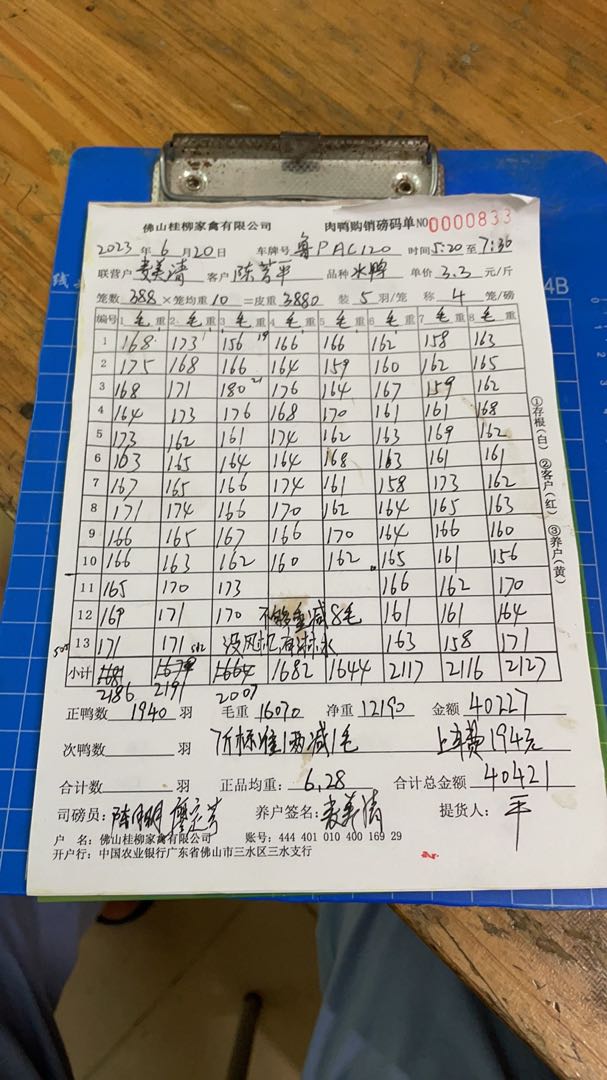 佛山桂柳家禽有限公司 肉鸭购销磅码单 NO 0000833
2023年6月20日 车牌号 鲁PAC120 时间5:20至7:30
联营户 麦美清 客户 陈芳平 品种 水鸭 单价 3.3 元/斤
笼数 388 ×笼均重 10 =皮重 3880 装 5 羽/笼 称 4 笼/磅
编号 1 毛 重 2 毛 重 3 毛 重 4 毛 重 5 毛 重 6 毛 重 7 毛 重 8 毛 重
1 168 173 156 19 166 166 162 158 163
2 175 168 166 164 159 160 162 165
3 168 171 180 21 176 164 167 159 162
4 164 173 176 168 170 161 161 168
5 173 162 161 174 162 163 169 162
6 163 165 164 164 168 163 161 161
7 167 165 166 174 161 158 173 162
8 171 174 166 170 162 164 165 163
9 166 165 167 166 170 164 166 160
10 166 163 162 160 162 165 161 156
11 165 170 173 166 162 170
12 169 171 170 不够重减8毛 161 161 164
505 13 171 171 512 没风机 163 158 171
小计 1681 1679 1664 1682 1644 2117 2116 2127
2186 2191 2007
正鸭数 1940 羽 毛重 16070 净重 12190 金额 40227
次鸭数 羽 7斤标准1两减1毛 上车费194元
合计数 羽 正品均重: 6.28 合计总金额 40421
司磅员: 养户签名: 麦美清 提货人: 平
户 名: 佛山桂柳家禽有限公司 账号: 444 401 010 400 169 29
开户行: 中国农业银行广东省佛山市三水区三水支行
①存根(白) ②客户(红) ③养户(黄)
4B